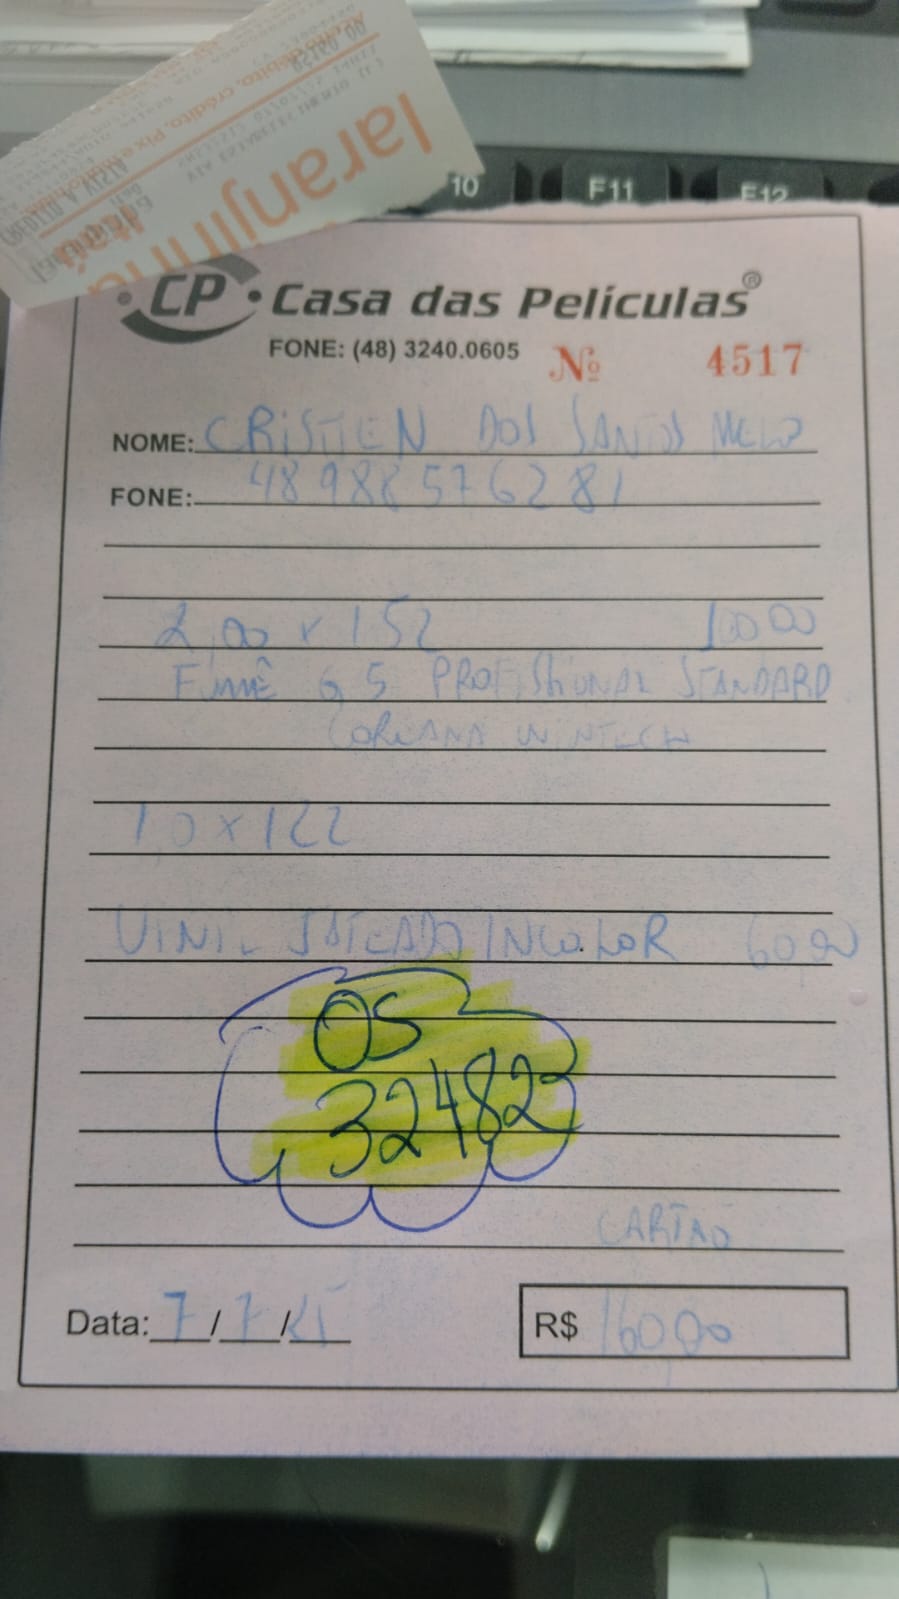 laranjinha
Itaú
débito, crédito, Pix e
10 F11 F12
CP Casa das Películas®
FONE: (48) 3240.0605 Nº 4517
NOME: CRISTIEN DOS SANTOS MELO
FONE: 48 988576281
2,00 x 152 10000
FUMÊ G5 PROFISSIONAL STANDARD
COREANA WINTECH
1,0 x 122
VINIL JATEADO INCOLOR 60,00
OS
32482
CARTAO
Data: 7/7/25 R$ 16000